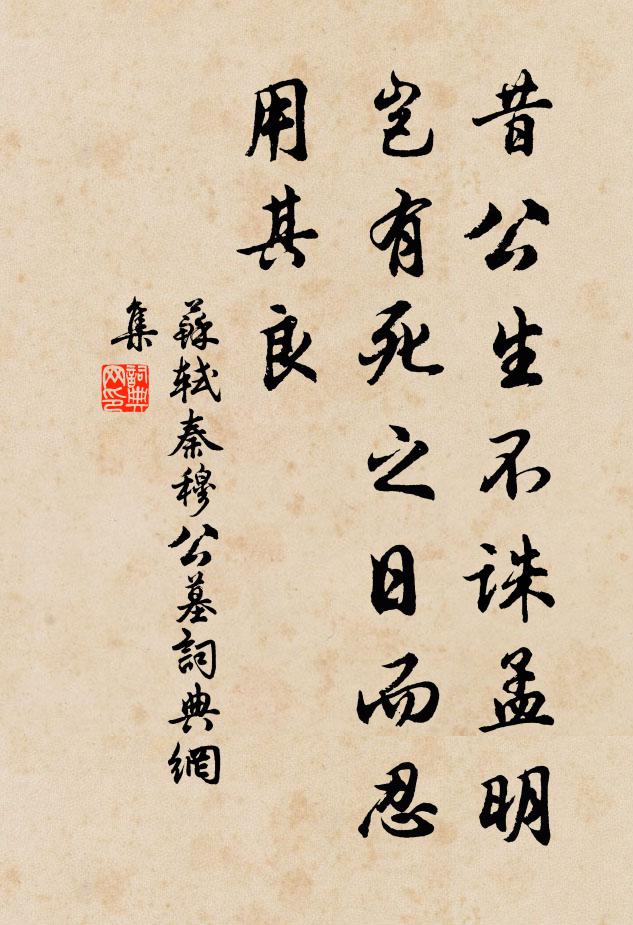 昔公生不誅孟明
豈有死之日而忍
用其良
蘇軾秦穆公墓詞典網
集
詞典
网印